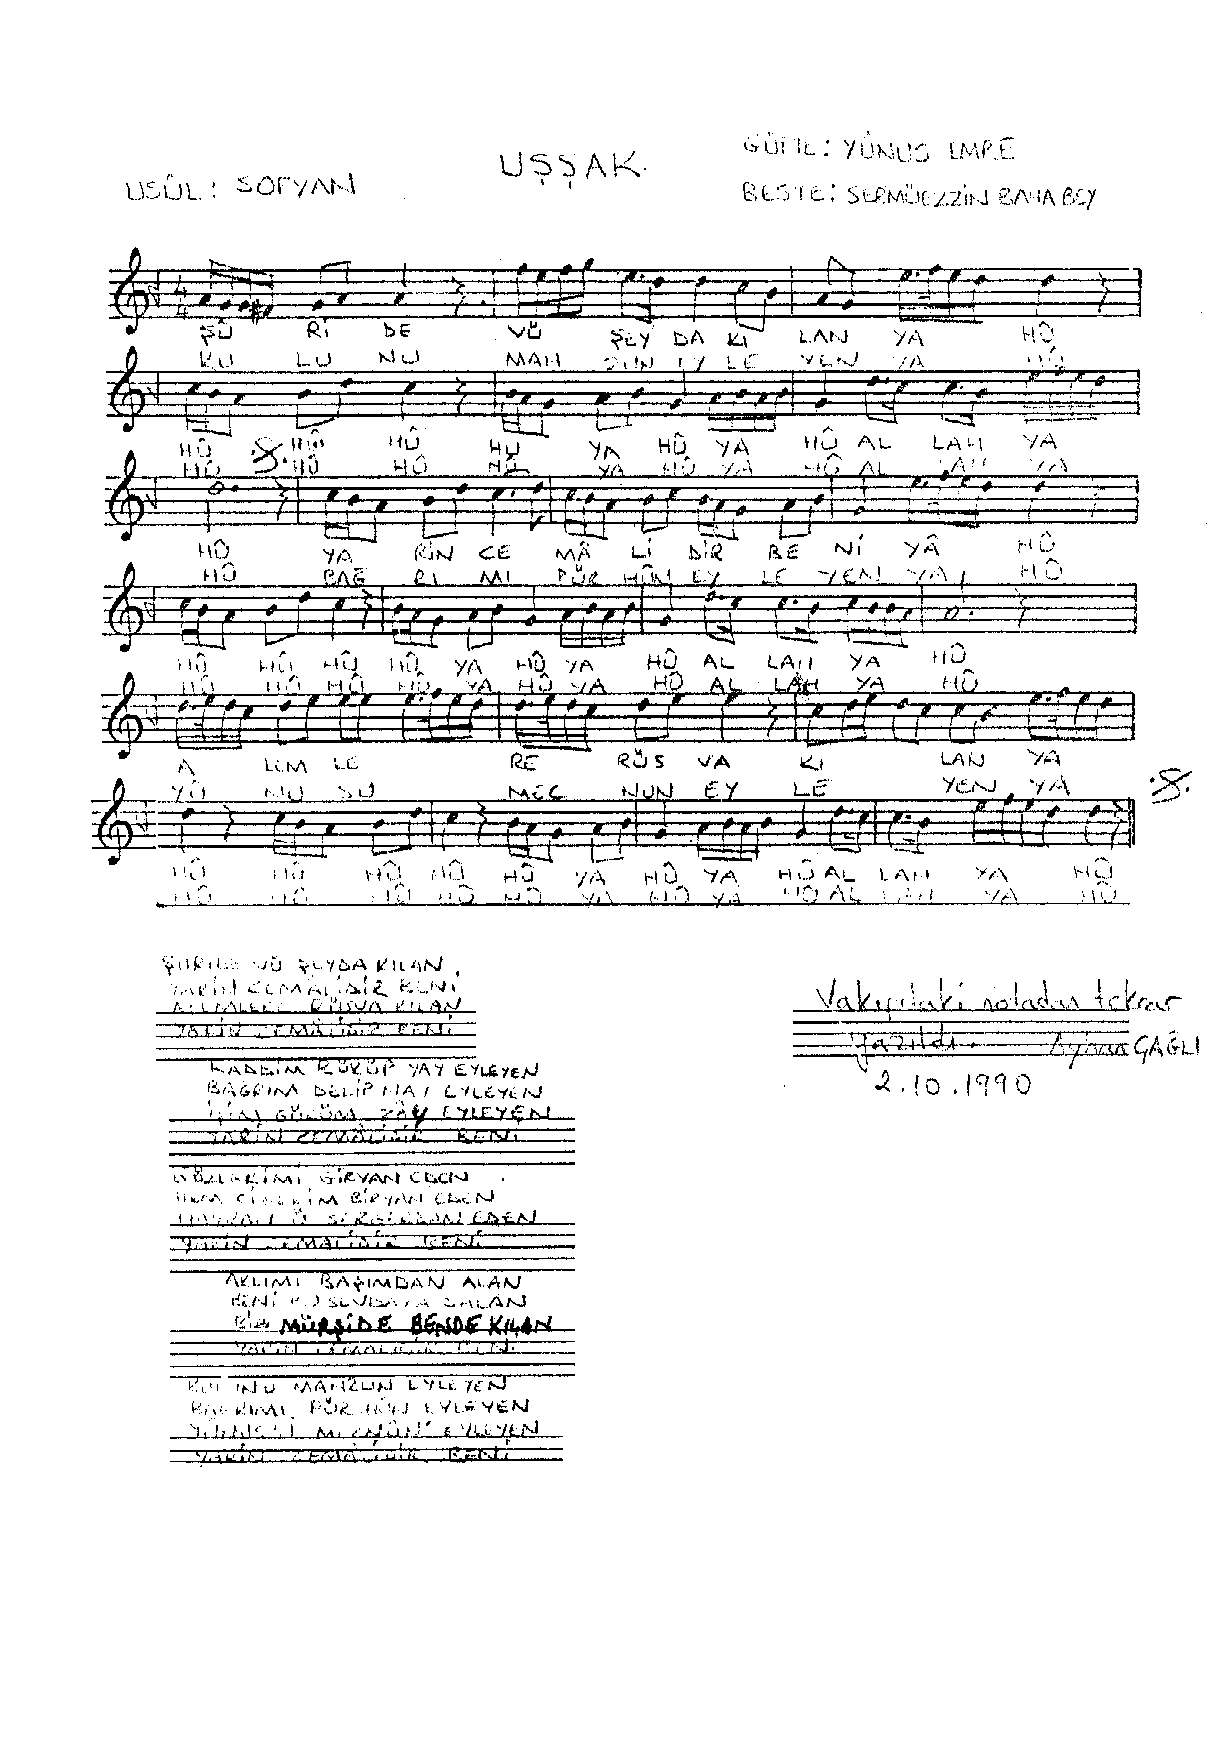 GÜFTE: YÛNUS EMRE
UŞŞAK
USÛL: SOFYAN
BESTE: SERMÜEZZİN BAHA BEY
4
4
ŞÛ Rİ DE VÜ ŞEY DA KI LAN YA HÛ
KU LU NU MAH ZUN EY LE YEN YA HÛ
HÛ HÛ HÛ HU YA HÛ YA HÛ AL LAH YA
HÛ HÛ HÛ HÛ YA HÛ YA HÛ AL LAH YA
HÛ YA RİN CE MÂ Lİ DİR BE Nİ YÂ HÛ
HÛ BAĞ RI MI PÜR HÛN EY LE YEN YA HÛ
HÛ HÛ HÛ HÛ YA HÛ YA HÛ AL LAH YA HÛ
HÛ HÛ HÛ HÛ YA HÛ YA HÛ AL LAH YA HÛ
A LEM LE RE RÜS VA KI LAN YA
YÛ NU SU MEC NUN EY LE YEN YA
HÛ HÛ HÛ HÛ HÛ YA HÛ YA HÛ AL LAH YA HÛ
HÛ HÛ HÛ HÛ HÛ YA HÛ YA HÛ AL LAH YA HÛ
ŞÛRİDE VÜ ŞEYDA KILAN
YARİN CEMÂLİDİR BENİ
ALEMLERE RÜSVA KILAN
YARİN CEMÂLİDİR BENİ
KADDİM BÜKÜP YAY EYLEYEN
BAĞRIM DELİP NAY EYLEYEN
GÜNÜM ZÂY EYLEYEN
YARİN CEMÂLİDİR BENİ
GÖZLERİMİ GİRYAN EDEN
HEM CİĞERİM BİRYAN EDEN
HAYRAN Ü SERGERDAN EDEN
YARİN CEMALİDİR BENİ
AKLIMI BAŞIMDAN ALAN
BENİ BU SEVDAYA SALAN
BİR MÜRŞİDE BENDE KILAN
YARİN CEMALİDİR BENİ
KULUNU MAHZUN EYLEYEN
BAĞRIMI PÜR HÛN EYLEYEN
EYLEYEN
YARİN CEMÂLİDİR BENİ
Vakıftaki notadan tekrar
yazıldı. Ayhan ÇAĞLI
2.10.1990